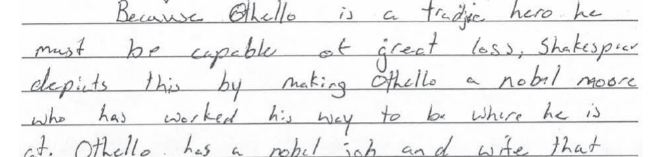 Because Othello is a tradjic hero he
must be capable of great loss, Shakespier
depicts this by making Othello a nobel moore
who has worked his way to be where he is
at. Othello has a nobel job and wife that